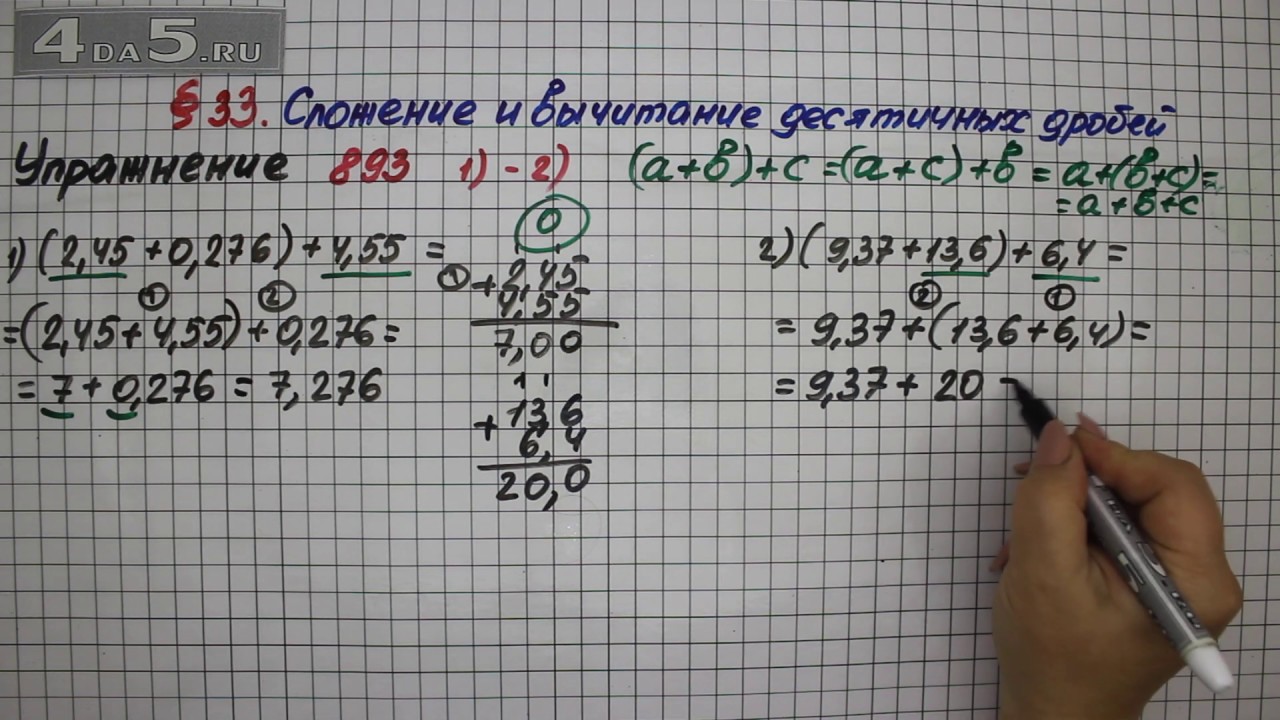 4DA5.RU
§ 33. Сложение и вычитание десятичных дробей
Упражнение 893 1) - 2)
(a+в)+c=(a+c)+в=a+(в+c)=
=a+в+c
1) (2,45+0,276)+4,55=
① ②
=(2,45+4,55)+0,276=
=7+0,276=7,276
0
①
+2,45
4,55
7,00
1 1
+13,6
6,4
20,0
2) (9,37+13,6)+6,4=
② ①
=9,37+(13,6+6,4)=
=9,37+20